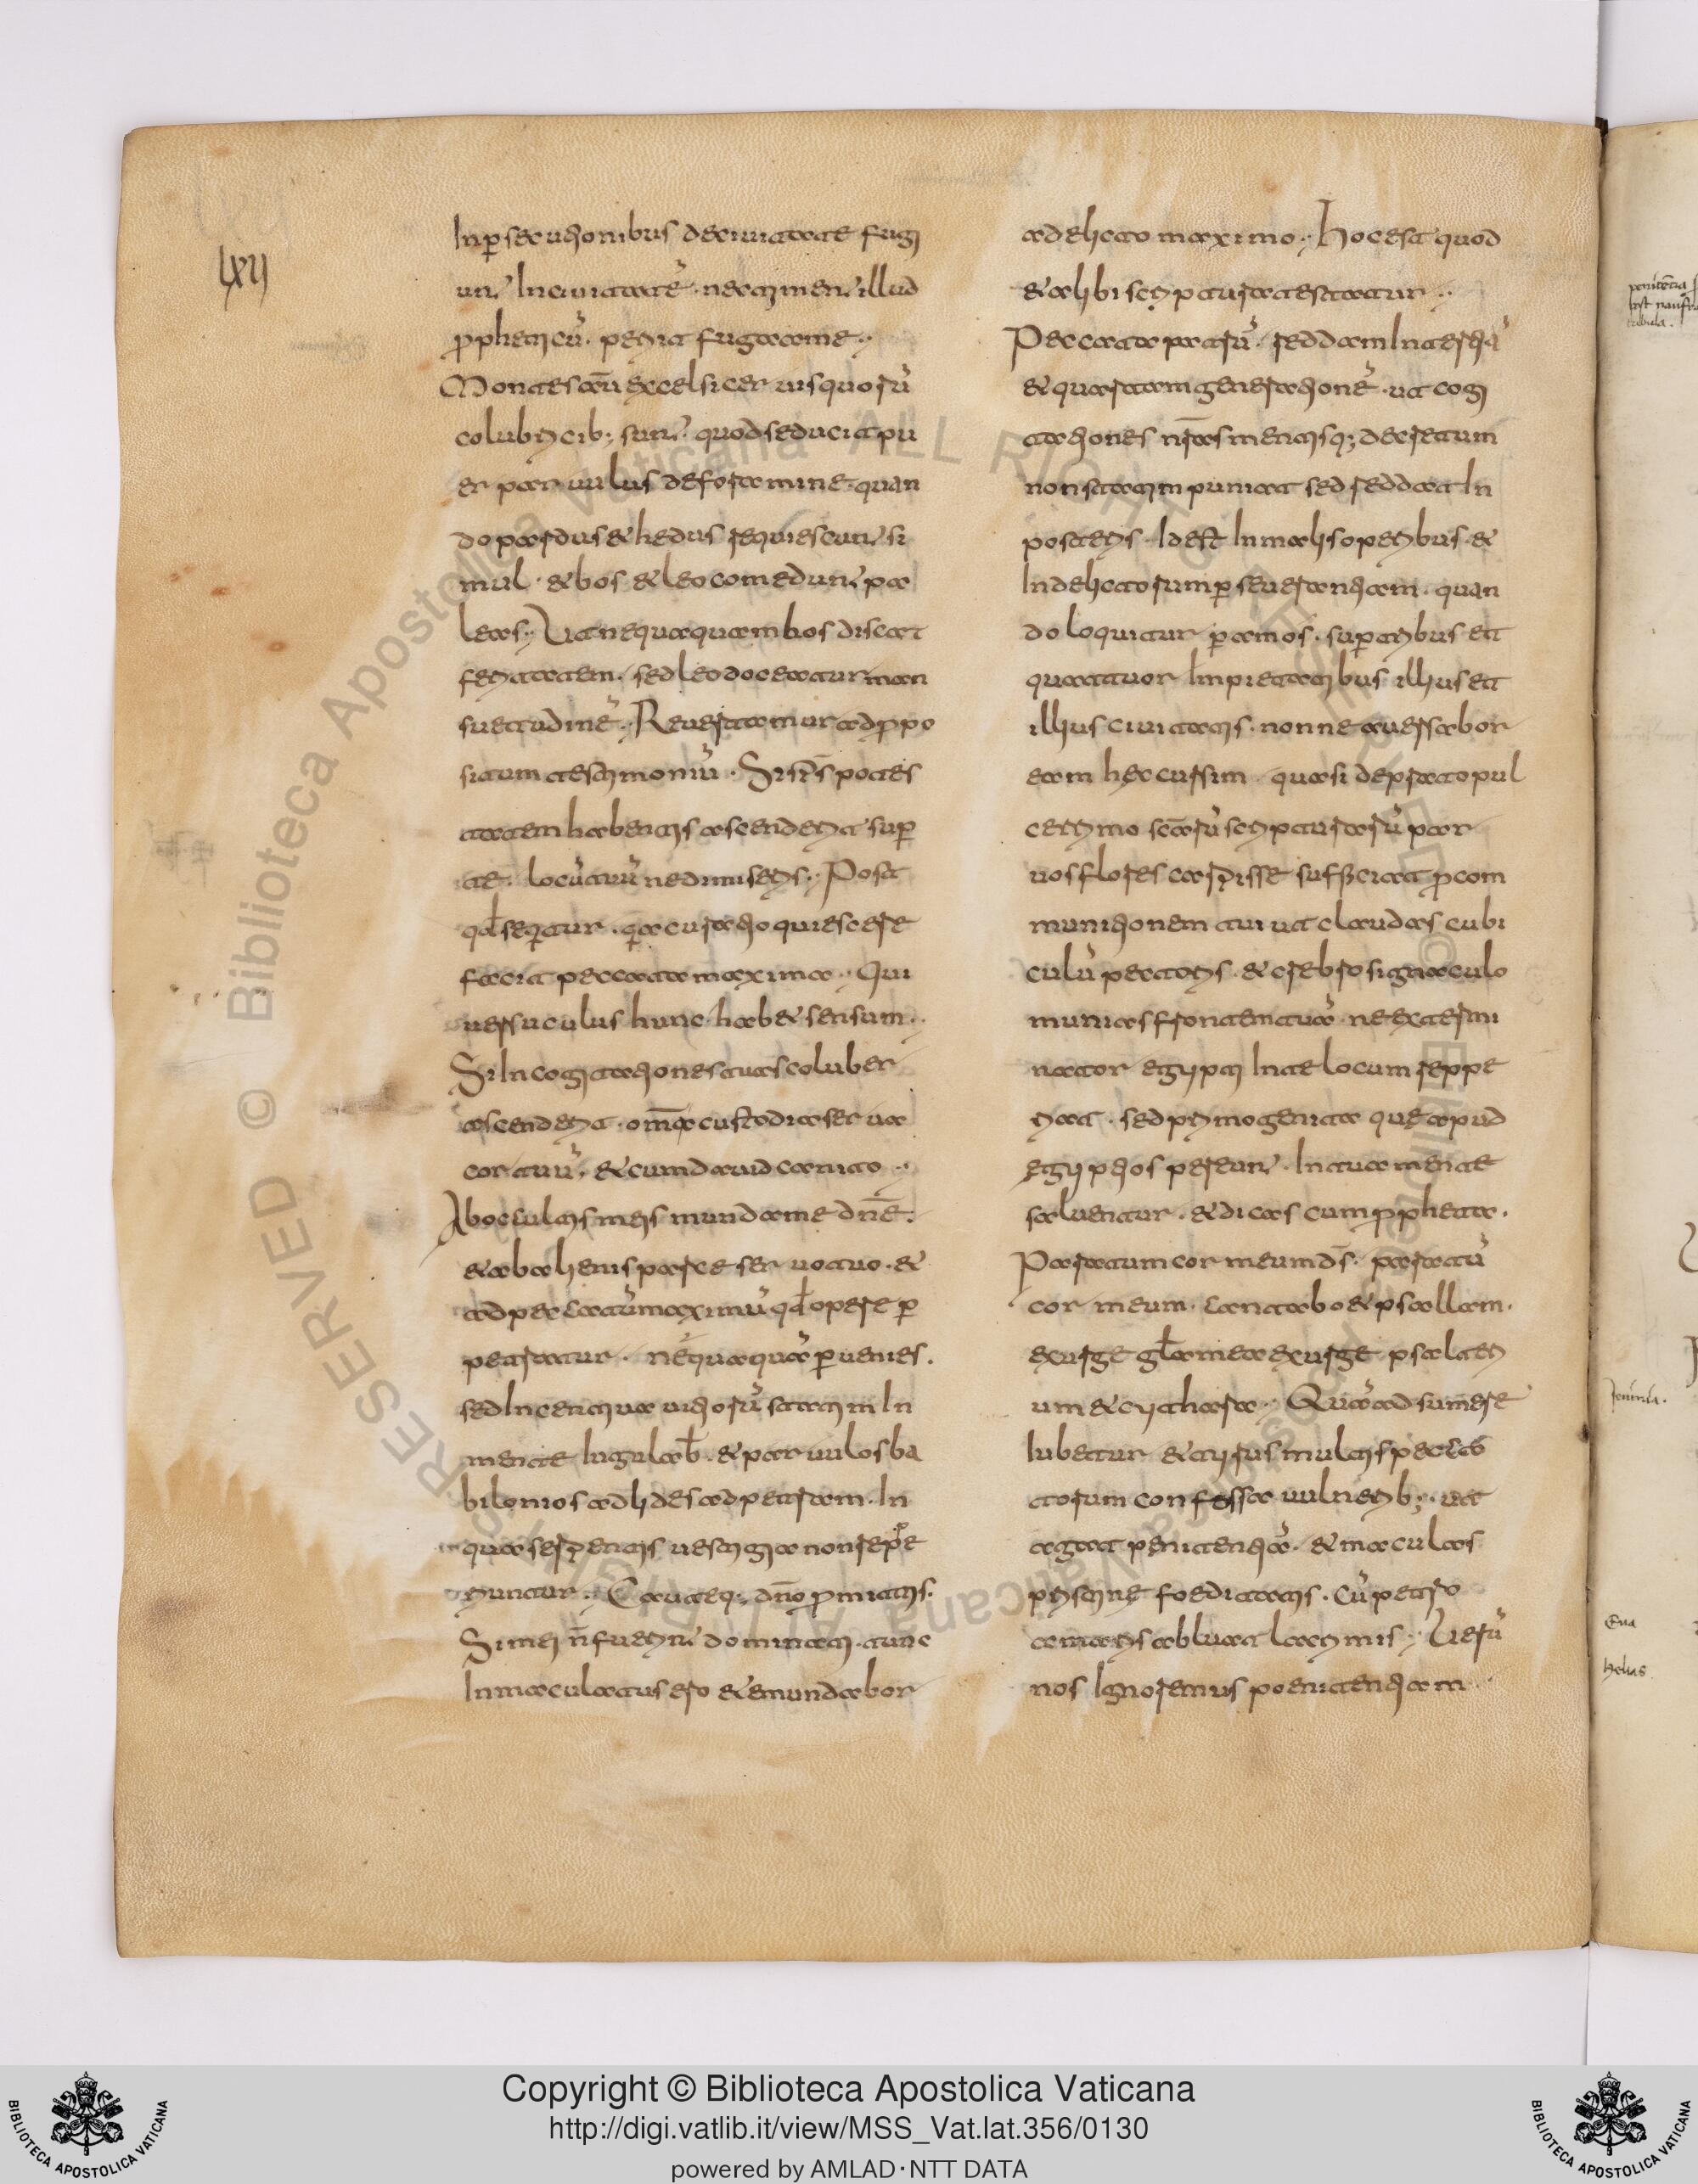 lxii
Inp̄secutionibus deciuitate fugi
unt Inciuitatē · nectiment illud
p̄pheticū · petrit fugaame ·
Montes cū excelsi cer uisquorū
colubricib; sunt · quod seducit pu
er par uulus deforamine · quan
do pardus & hedus requiescunt si
mul · & bos & leo comedunt pa
leas · Ut nequaquam bos discat
feritatem · sed leo doceatur man
suetudinē · Reuertamur ad p̄po
situm testimoniū · Si sp̄s potes
tatem habentis ascenderit sup̄
te · locū tuū nedimiseris · Post
qd̄ sequitur · q̄a curatio quiescere
facit peccata maxima · Qui
uersuculus hunc hab& sensum ·
Si In cogitationes tuas coluber
ascenderit · om̄a custodia ser ua
cor tuū · & cum dauid canito ·
Aboccultis meis munda me dn̄e ·
& ab alienis parce ser uo tuo · &
ad peccatū maximū qd̄ opere p̄
petratur · nequaquā p̄uenies ·
sed Incentiua uitiorū statim In
mente Iugulab̄ · & par uulos ba
bilonios adlides ad petram · In
qua serpentis uestigia non reppe
riuntur · Cauteq; dn̄o p̄mittis ·
Si mei n̄ fuerint dominati · tunc
Inmaculatus ero & emundabor
adelicto maximo · Hoc est quod
& alibi scriptura testatur ·
Peccata patrū · reddam In tertiā
& quartam generationē · ut cogi
tationes nr̄as mentisq; decretum
non statim puniat sed reddat In
posteris · Id est In malis operibus · &
In delictorum p̄seuerantiam · quan
do loquitur p̄ amos · sup̄ tribus et
quattuor Impietatibus illius et
illius ciuitatis · nonne auersabor
eam hec cursim · quasi de prato pul
cerrimo scārū scripturarū par
uos flores carpsisse sufficiat p̄ com
munitionem tui ut claudas cubi
culū pectoris · & crebro signaculo
munias frontem tuā · ne extermi
nator egypti In te locum reppe
riat · sed primogenita que apud
egyptios pereunt · In tua mente
saluentur · & dicas cum p̄pheta ·
Paratum cor meum ds̄ · paratū
cor meum · cantabo & psallam ·
exurge gl̄a mea exurge psalteri
um & cythara · Quā adsumere
Iubetur & tyrus multis pecca
torum confessa uulnerib; · ut
agat penitentiā · & maculas
pristine foeditatis · cū petro
amaris abluat lacrimis · Uerū
nos Ignoremus poenitentiam
Copyright © Biblioteca Apostolica Vaticana
http://digi.vatlib.it/view/MSS_Vat.lat.356/0130
powered by AMLAD·NTT DATA
BIBLIOTECA APOSTOLICA VATICANA
BIBLIOTECA APOSTOLICA VATICANA